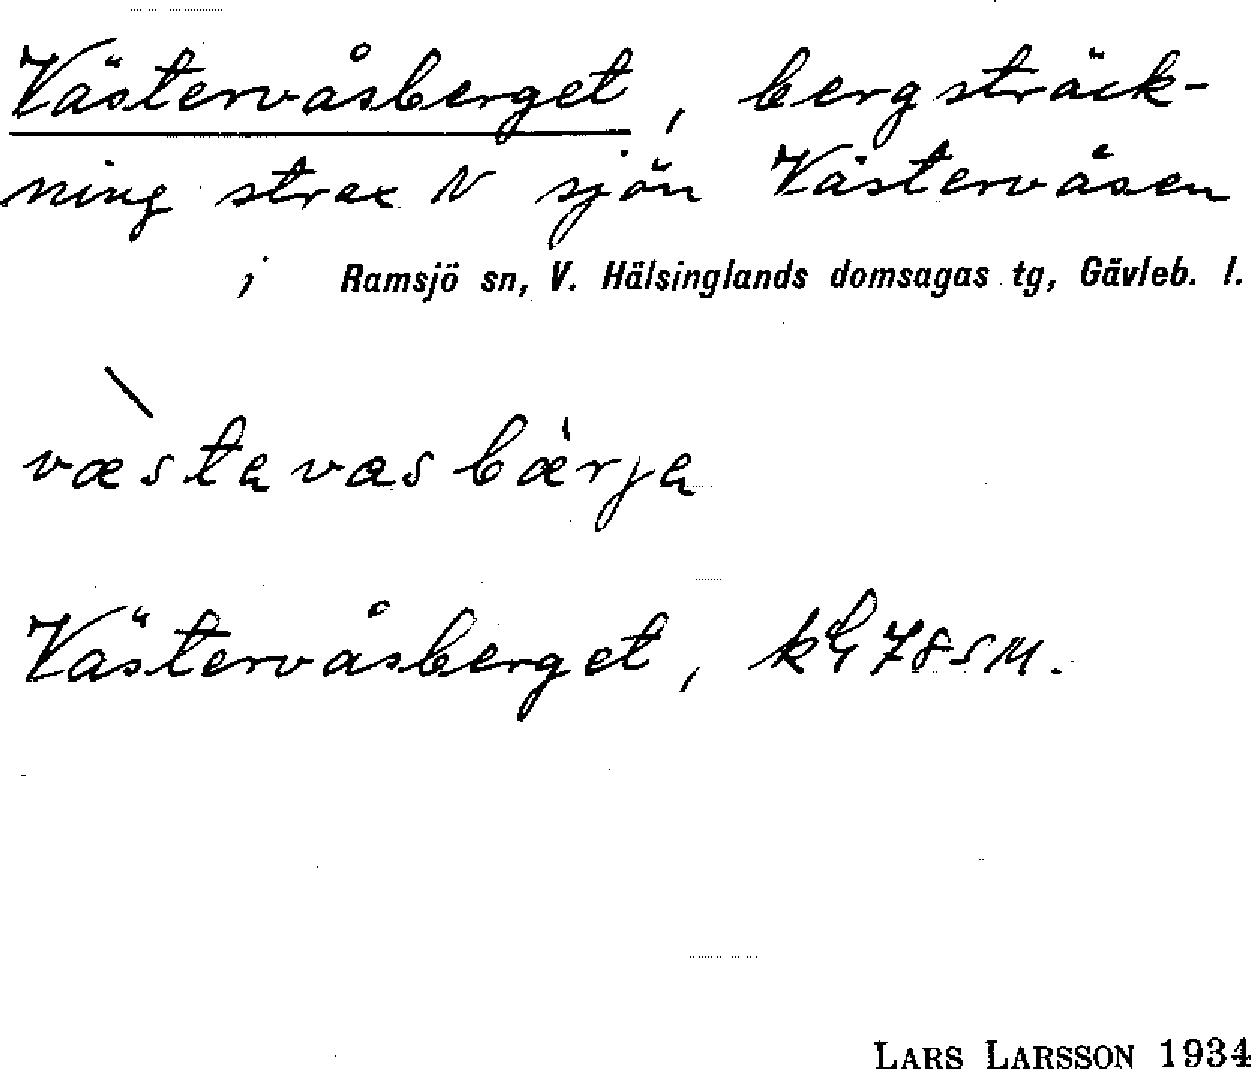 Västervåsberget, bergsträck-
ning strax N sjön Västervåsen
i Ramsjö sn, V. Hälsinglands domsagas tg, Gävleb. l.
væstavasbærja
Västervåsberget, kbl 78 SM.
LARS LARSSON 1934